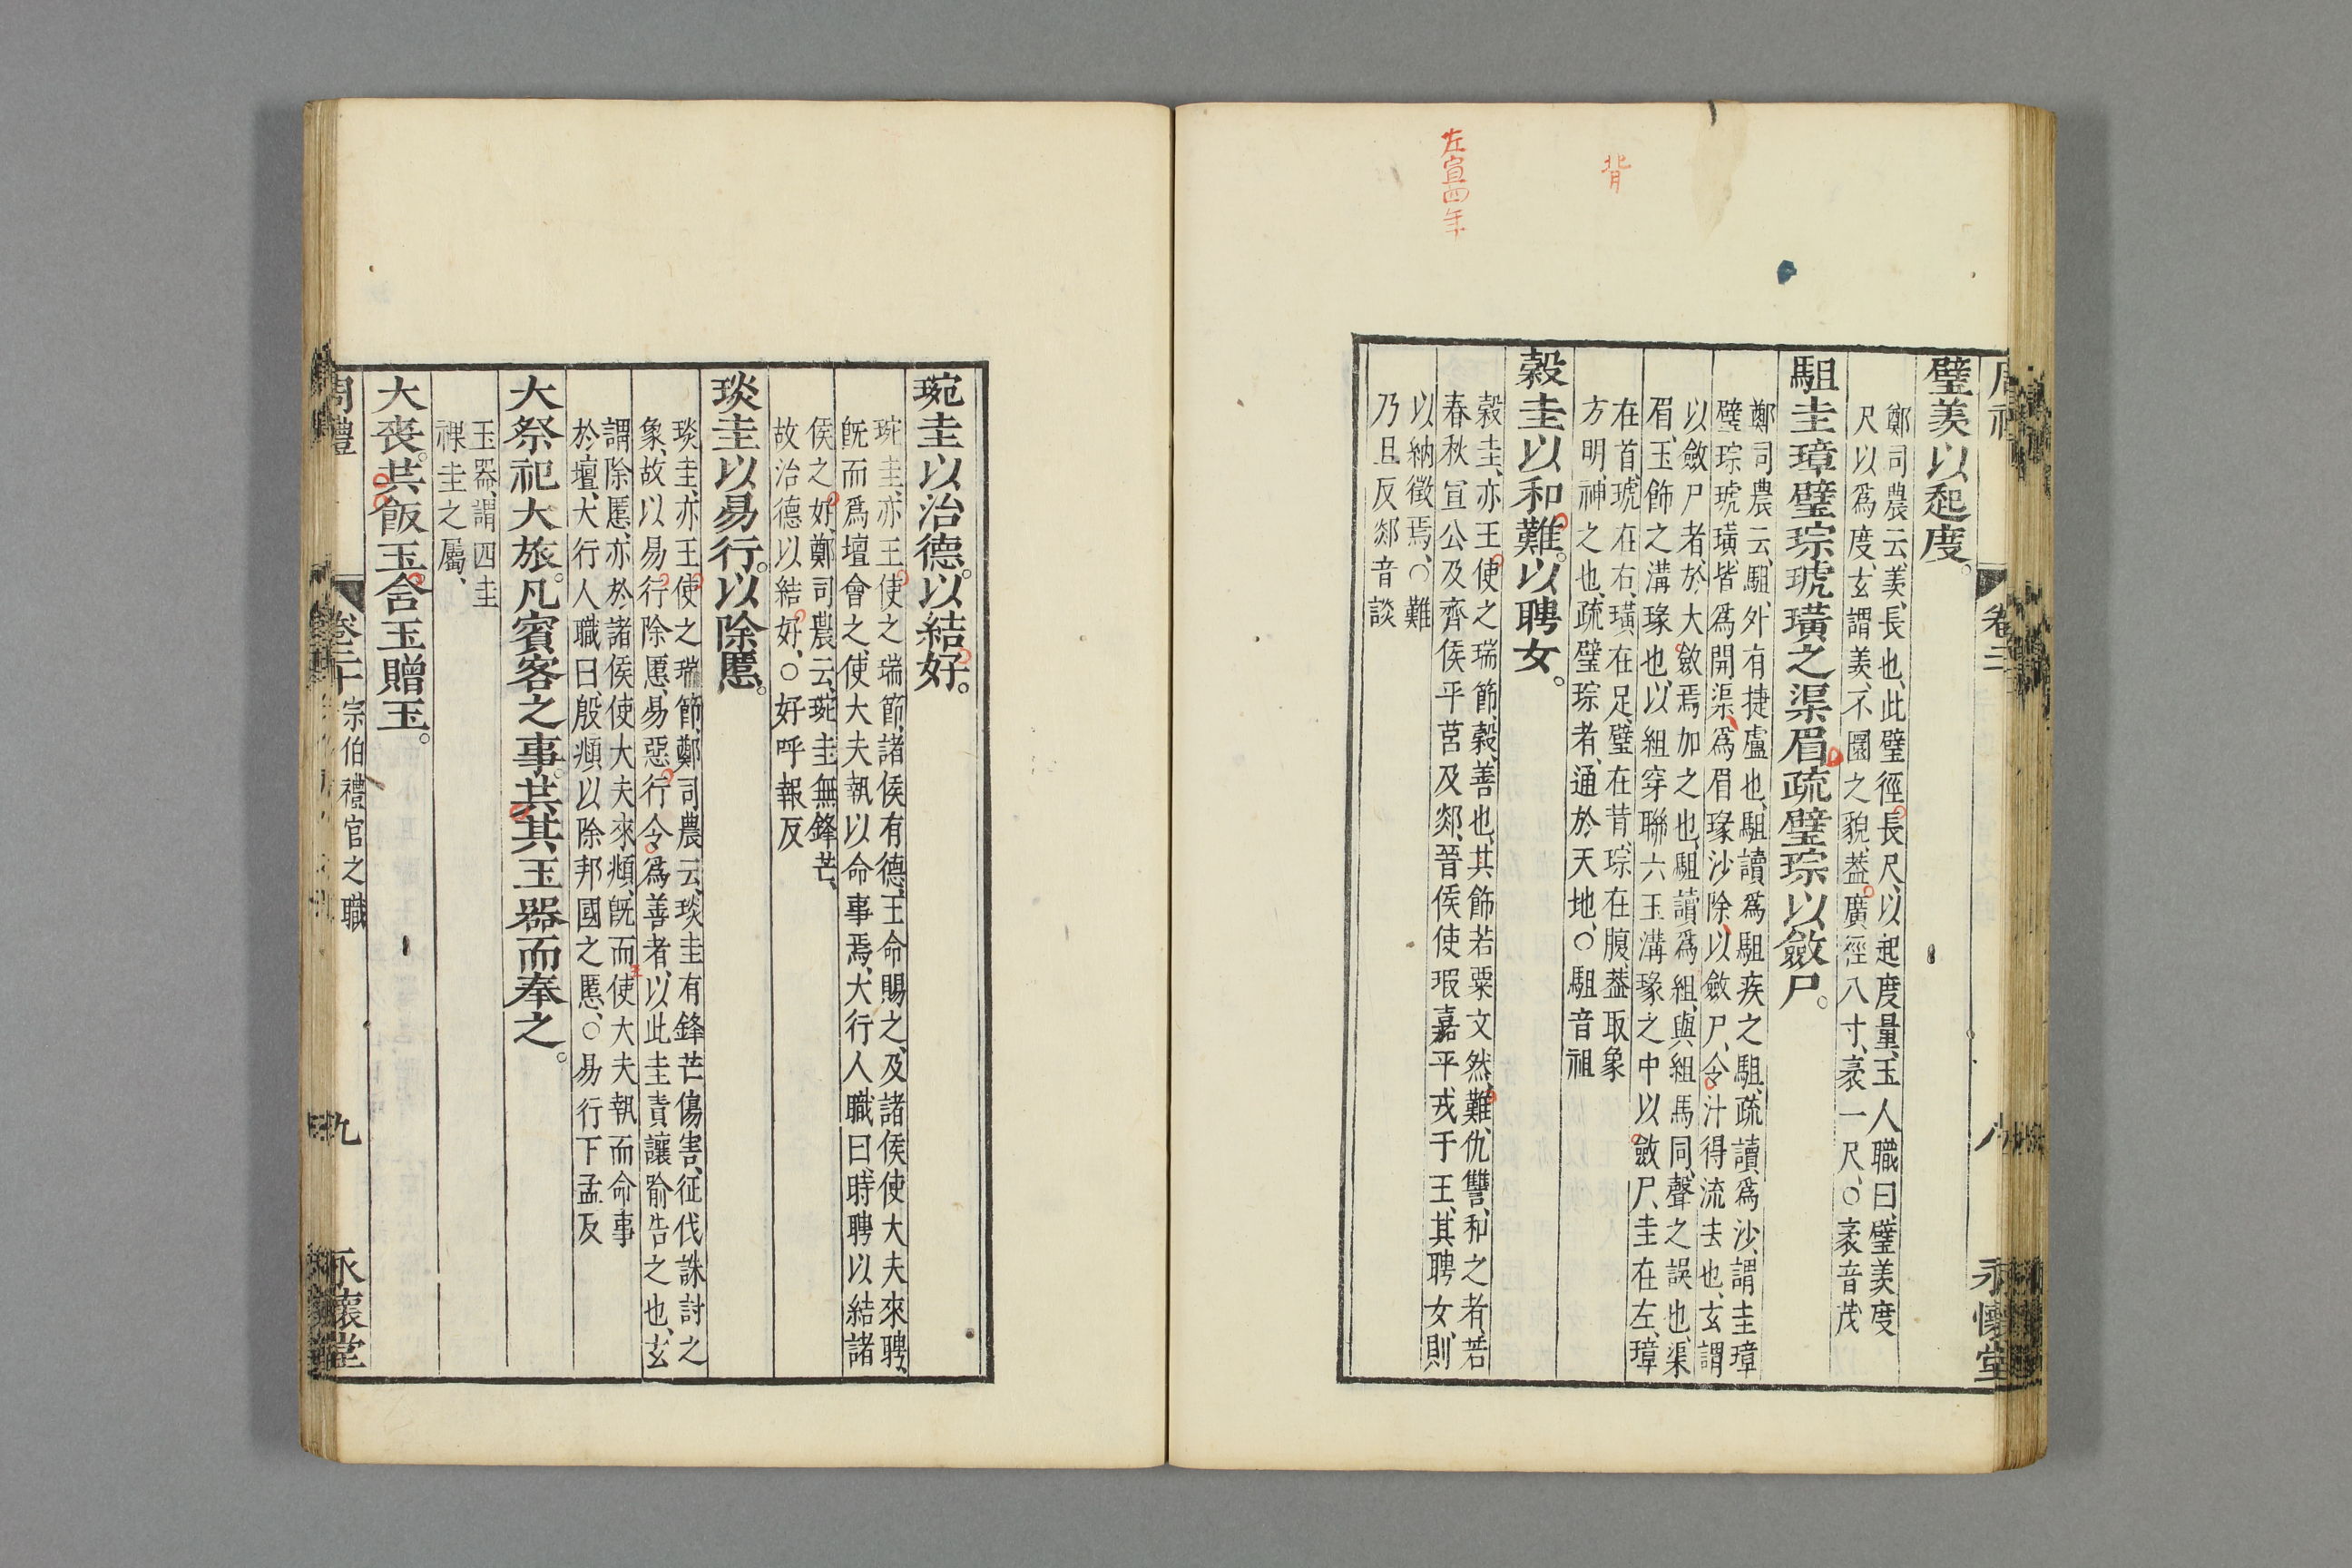 背
左宣四年
璧羨以起度。
鄭司農云、羨、長也、此璧徑長尺、以起度量、玉人職曰、璧羨度
尺以爲度、玄謂羨、不圜之貌、蓋廣徑八寸、袤一尺、○袤音茂
駔圭璋璧琮琥璜之渠眉疏璧琮以斂尸。
鄭司農云、駔、外有捷盧也、駔讀爲駔疾之駔、疏讀爲沙、謂圭璋
璧琮琥璜、皆爲開渠、爲眉瑑沙除、以斂尸、令汁得流去也、玄謂
以斂尸者、於大斂焉加之也、駔讀爲組、與組馬同、聲之誤也、渠
眉、玉飾之溝瑑也、以組穿聯六玉溝瑑之中以斂尸、圭在左、璋
在首、琥在右、璜在足、璧在背、琮在腹、蓋取象
方明、神之也、疏璧琮者、通於天地、○駔音祖
穀圭以和難。以聘女。
穀圭、亦王使之瑞節、穀、善也、其飾若粟文然、難、仇讐、和之者、若
春秋宣公及齊侯平莒及郯、晉侯使瑕嘉平戎于王、其聘女、則
以納徵焉、○難
乃旦反郯音談
卷二
八
永懷堂
琬圭以治德。以結好。
琬圭、亦王使之瑞節、諸侯有德、王命賜之、及諸侯使大夫來聘、
旣而爲壇會之、使大夫執以命事焉、大行人職曰、時聘以結諸
侯之好、鄭司農云、琬圭無鋒芒、
故治德以結好、○好呼報反
琰圭以易行。以除慝。
琰圭、亦王使之瑞節、鄭司農云、琰圭有鋒芒傷害、征伐誅討之
象、故以易行除慝、易惡行令爲善者、以此圭責讓喻告之也、玄
謂除慝、亦於諸侯使大夫來覜、旣而使大夫執而命事
於壇、大行人職曰、殷覜以除邦國之慝、○易行下孟反
大祭祀大旅。凡賓客之事。共其玉器而奉之。
玉器、謂四圭
祼圭之屬、
大喪。共飯玉含玉贈玉。
周禮
卷二十
宗伯禮官之職
九
永懷堂